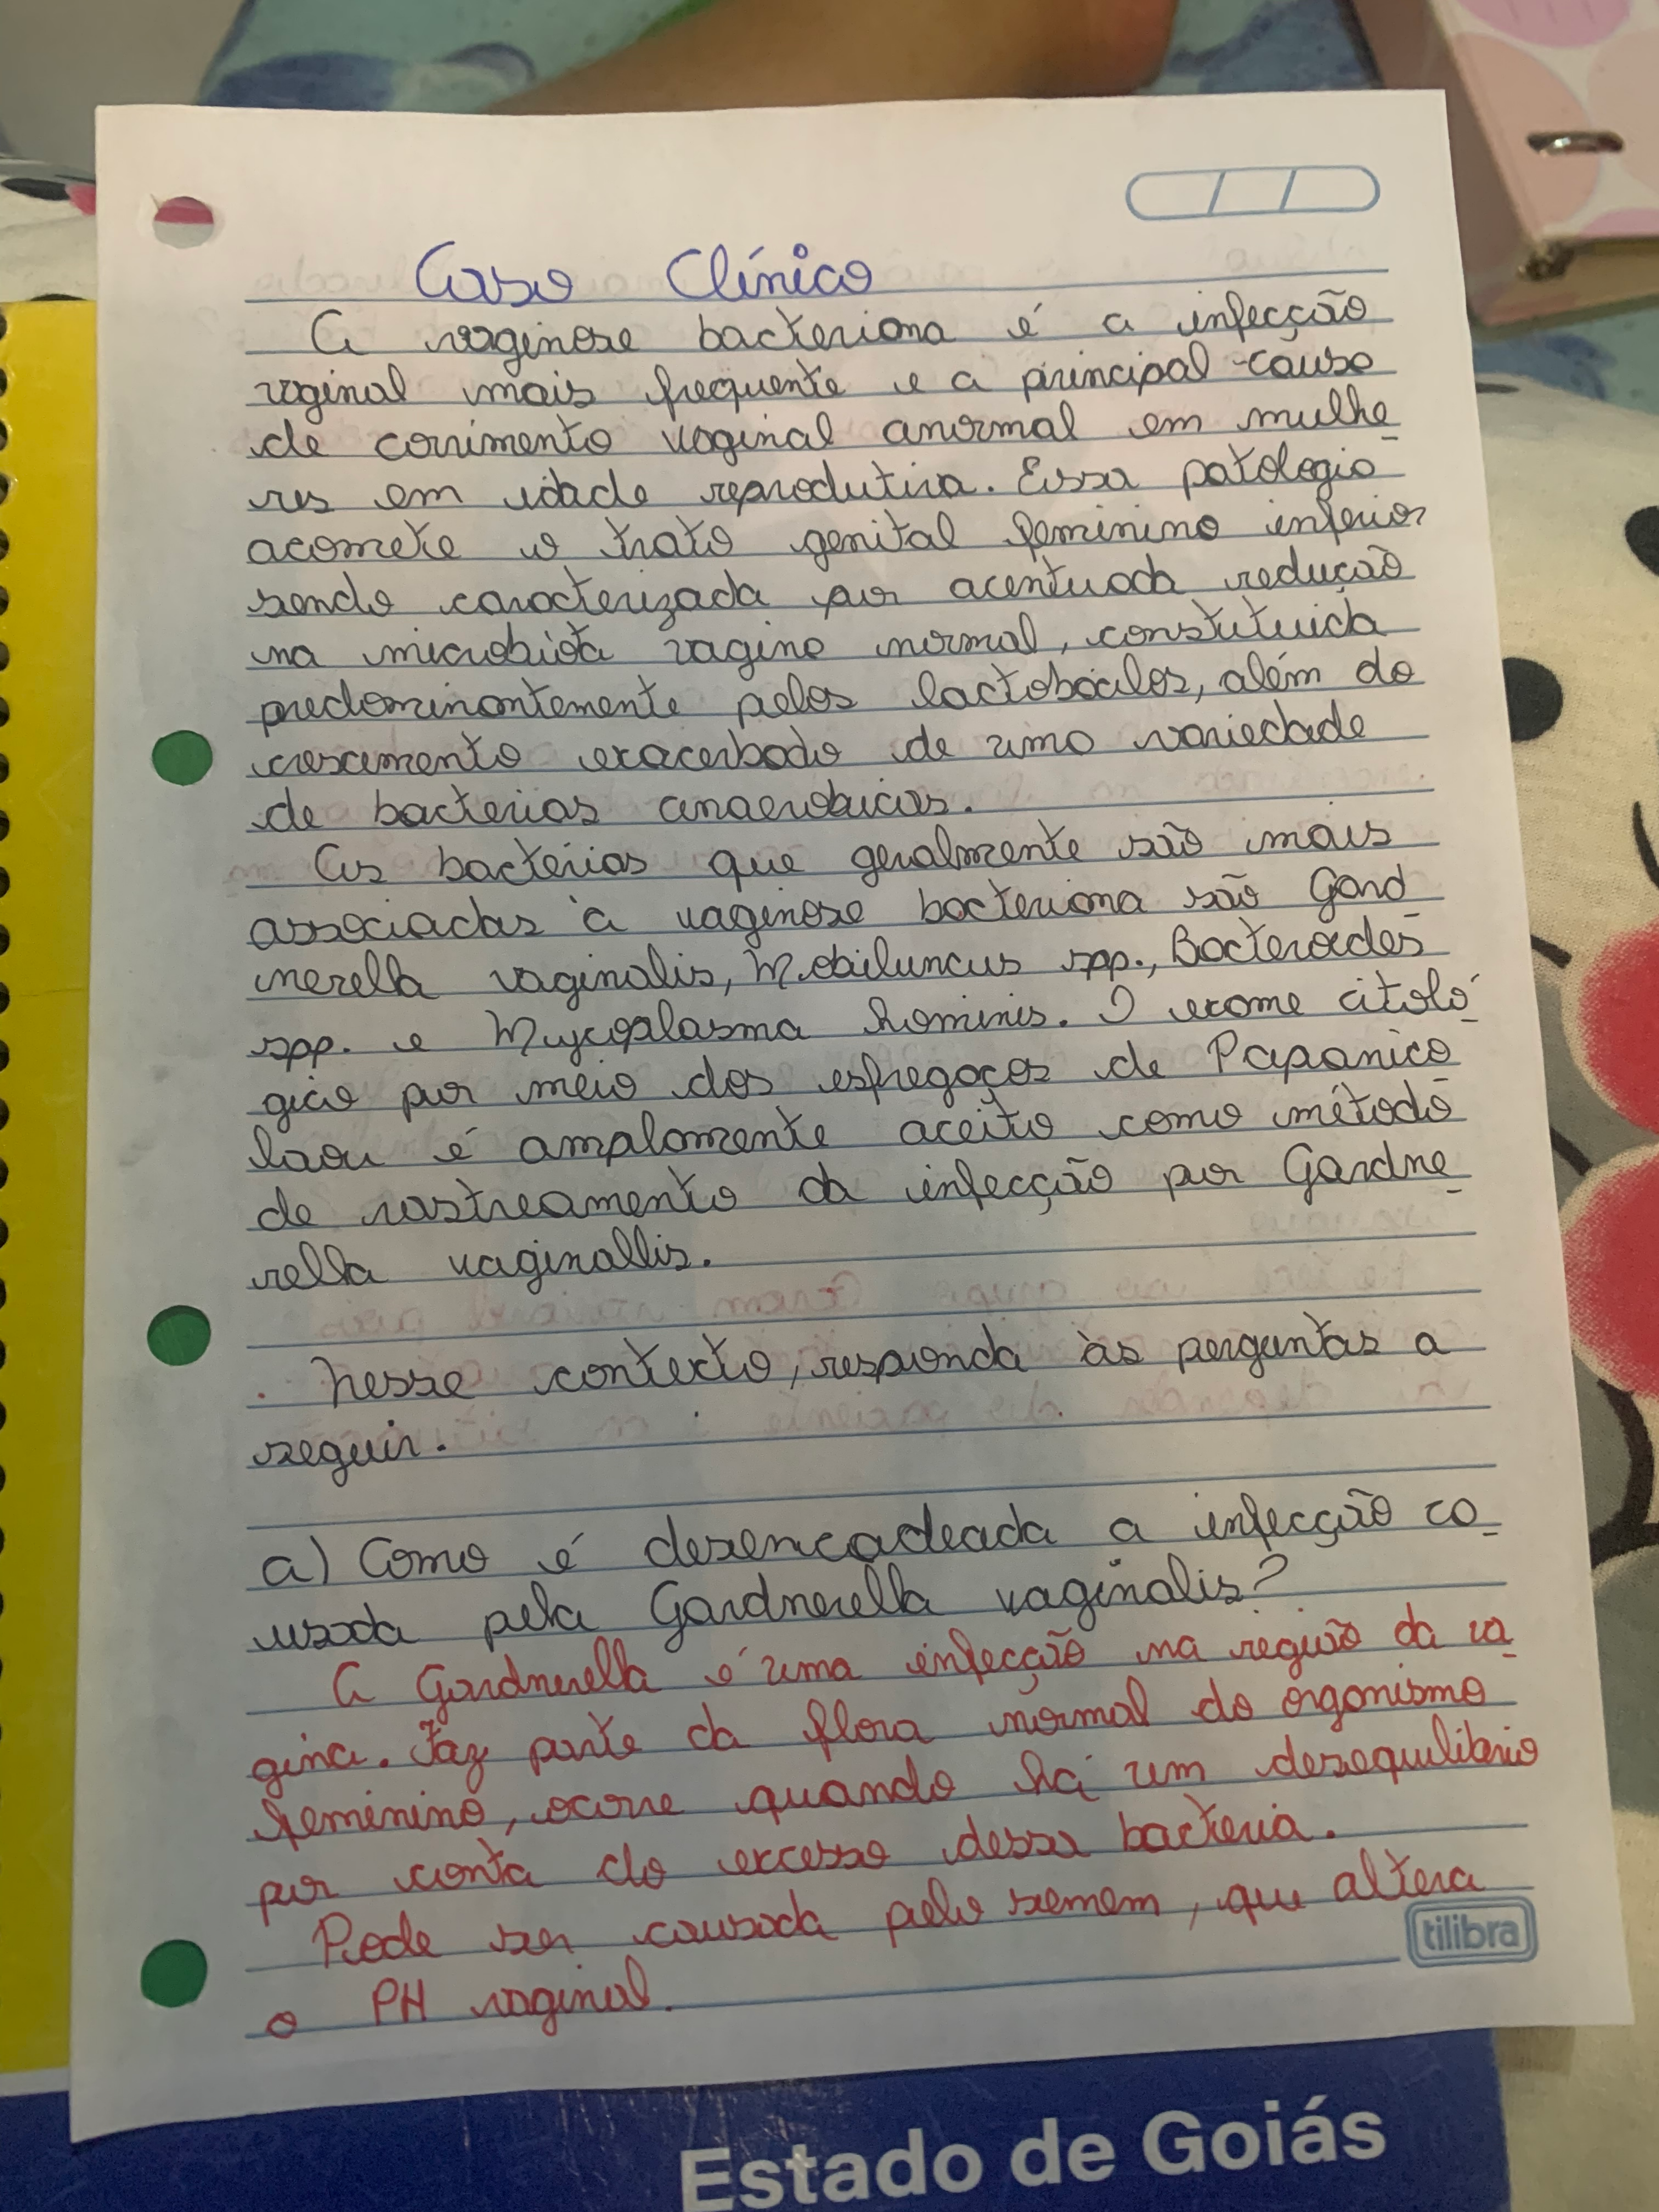 Caso Clínico
A vaginose bacteriana é a infecção
vaginal mais frequente e a principal causa
de corrimento vaginal anormal em mulhe
res em idade reprodutiva. Essa patologia
acomete o trato genital feminino inferior
sendo caracterizada por acentuada redução
na microbiota vagina normal, constutuida
predominantemente pelos lactobácilos, além do
crescimento exacerbado de uma variedade
de bacterias anaerobicas.
As bactérias que geralmente são mais
associadas à vaginose bacteriana são Gard
nerella vaginalis, Mobiluncus spp., Bacteroides
spp. e Mycoplasma hominis. O exame citoló
gico por meio dos esfregaços de Papanico
laou é amplamente aceito como método
de rastreamento da infecção por Gardne
rella vaginallis.
Nesse contexto, responda às perguntas a
seguir.
a) Como é desencadeada a infecção ca
usada pela Gardnerella vaginalis?
A Gardnerella é uma infecção na região da va
gina. Faz parte da flora normal do organismo
feminino, ocorre quando há um desequilibrio
por conta do excesso dessa bacteria.
Pode ser causada pelo semem, que altera
o PH vaginal.
tilibra
Estado de Goiás